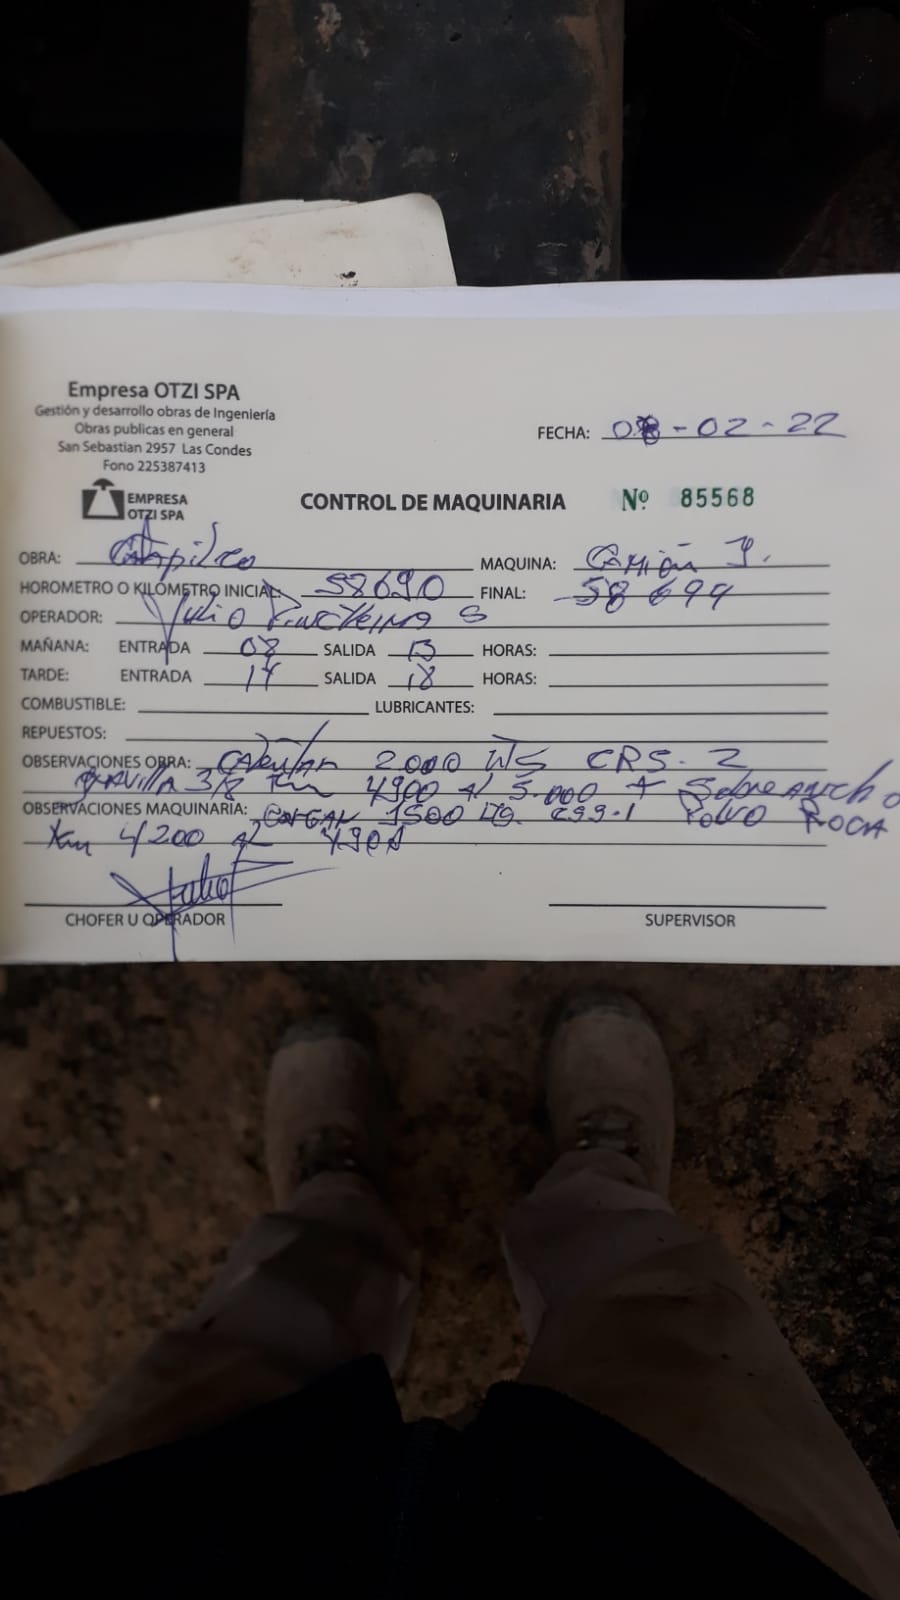 Empresa OTZI SPA
Gestión y desarrollo obras de Ingeniería
Obras publicas en general
San Sebastian 2957 Las Condes
Fono 225387413
FECHA: 08-02-22
EMPRESA
OTZI SPA
CONTROL DE MAQUINARIA Nº 85568
OBRA: Catapilco MAQUINA: Camión I.
HOROMETRO O KILÓMETRO INICIAL: 58690 FINAL: 58694
OPERADOR: Julio S
MAÑANA: ENTRADA 08 SALIDA 13 HORAS:
TARDE: ENTRADA 14 SALIDA 18 HORAS:
COMBUSTIBLE: LUBRICANTES:
REPUESTOS:
OBSERVACIONES OBRA: 2000 LTS CRS-2
gravilla 3/8 Km 4900 Al 5.000 + Sobreancho
OBSERVACIONES MAQUINARIA: 1500 Polvo Roca
Km 4200 al
CHOFER U OPERADOR SUPERVISOR